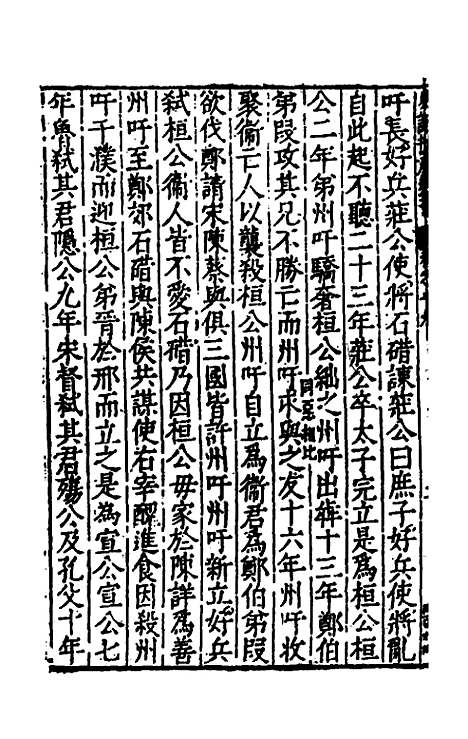 吁長好兵莊公使將石碏諫莊公曰庶子好兵使將亂
自此起不聽二十三年莊公卒太子完立是爲桓公桓
公二年弟州吁驕奢桓公絀之州吁出犇十三年鄭伯
弟段攻其兄不勝亡而州吁求與之友十六年州吁收
聚衞亡人以襲殺桓公州吁自立爲衞君爲鄭伯弟段
欲伐鄭請宋陳蔡與俱三國皆許州吁州吁新立好兵
弑桓公衞人皆不愛石碏乃因桓公毋家於陳詳爲善
州吁至鄭郊石碏與陳侯共謀使右宰醜進食因殺州
吁于濮而迎桓公弟晉於邢而立之是為宣公宣公七
年魯弑其君隱公九年宋督弑其君殤公及孔父十年